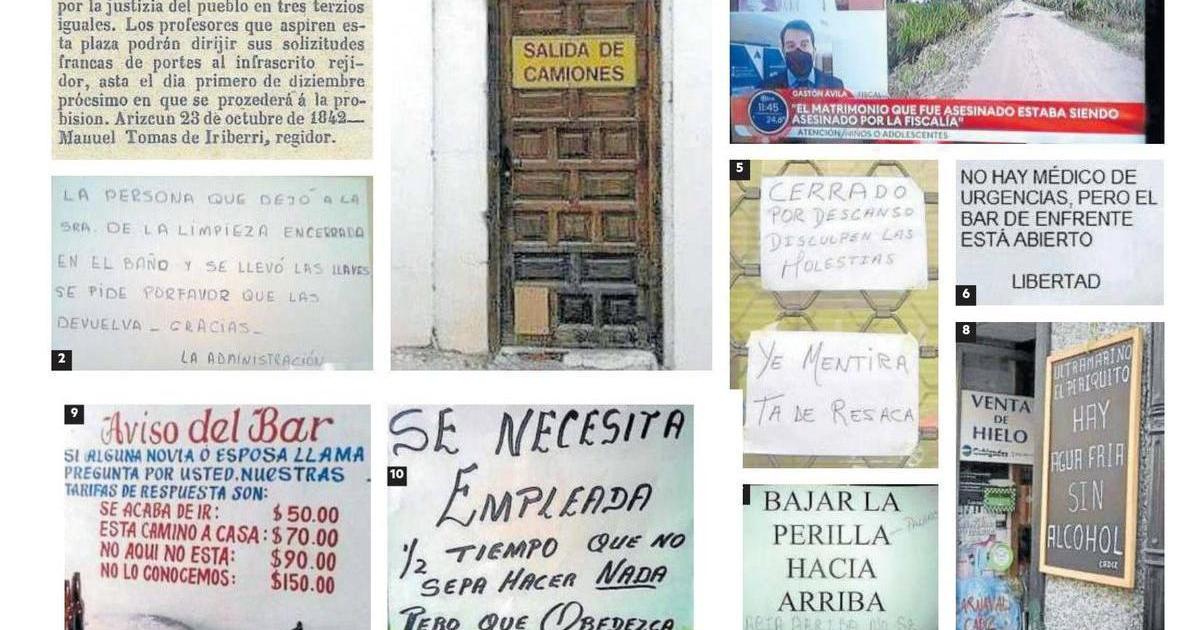 por la justizia del pueblo en tres terzios
iguales. Los profesores que aspiren es-
ta plaza podrán dirijir sus solizitudes
francas de portes al infrascrito reji-
dor, asta el dia primero de diziembre
prócsimo en que se prozederá á la pro-
bision. Arizcun 23 de octubre de 1842—
Manuel Tomas de Iriberri, regidor.
SALIDA DE
CAMIONES
GASTÓN ÁVILA FISCAL
11:45
24.6°
"EL MATRIMONIO QUE FUE ASESINADO ESTABA SIENDO
ASESINADO POR LA FISCALÍA"
ATENCIÓN NIÑOS O ADOLESCENTES
LA PERSONA QUE DEJÓ A LA
SRA. DE LA LIMPIEZA ENCERRADA
EN EL BAÑO Y SE LLEVÓ LAS LLAVES
SE PIDE PORFAVOR QUE LAS
DEVUELVA - GRACIAS -
LA ADMINISTRACIÓN
2
5
CERRADO
POR DESCANSO
DISCULPEN LAS
MOLESTIAS
YE MENTIRA
TA DE RESACA
NO HAY MÉDICO DE
URGENCIAS, PERO EL
BAR DE ENFRENTE
ESTÁ ABIERTO
LIBERTAD
6
8
VENTA
DE
HIELO
Cubigades
ULTRAMARINO
EL PERIQUITO
HAY
AGUA FRIA
SIN
ALCOHOL
CADIZ
CARNAVAL
9
Aviso del Bar
SI ALGUNA NOVIA Ó ESPOSA LLAMA
PREGUNTA POR USTED. NUESTRAS
TARIFAS DE RESPUESTA SON:
SE ACABA DE IR: $50.00
ESTA CAMINO A CASA: $70.00
NO AQUI NO ESTA: $90.00
NO LO CONOCEMOS: $150.00
10
SE NECESITA
EMPLEADA
1/2 TIEMPO QUE NO
SEPA HACER NADA
PERO QUE OBEDEZCA
BAJAR LA
PERILLA
HACIA
ARRIBA